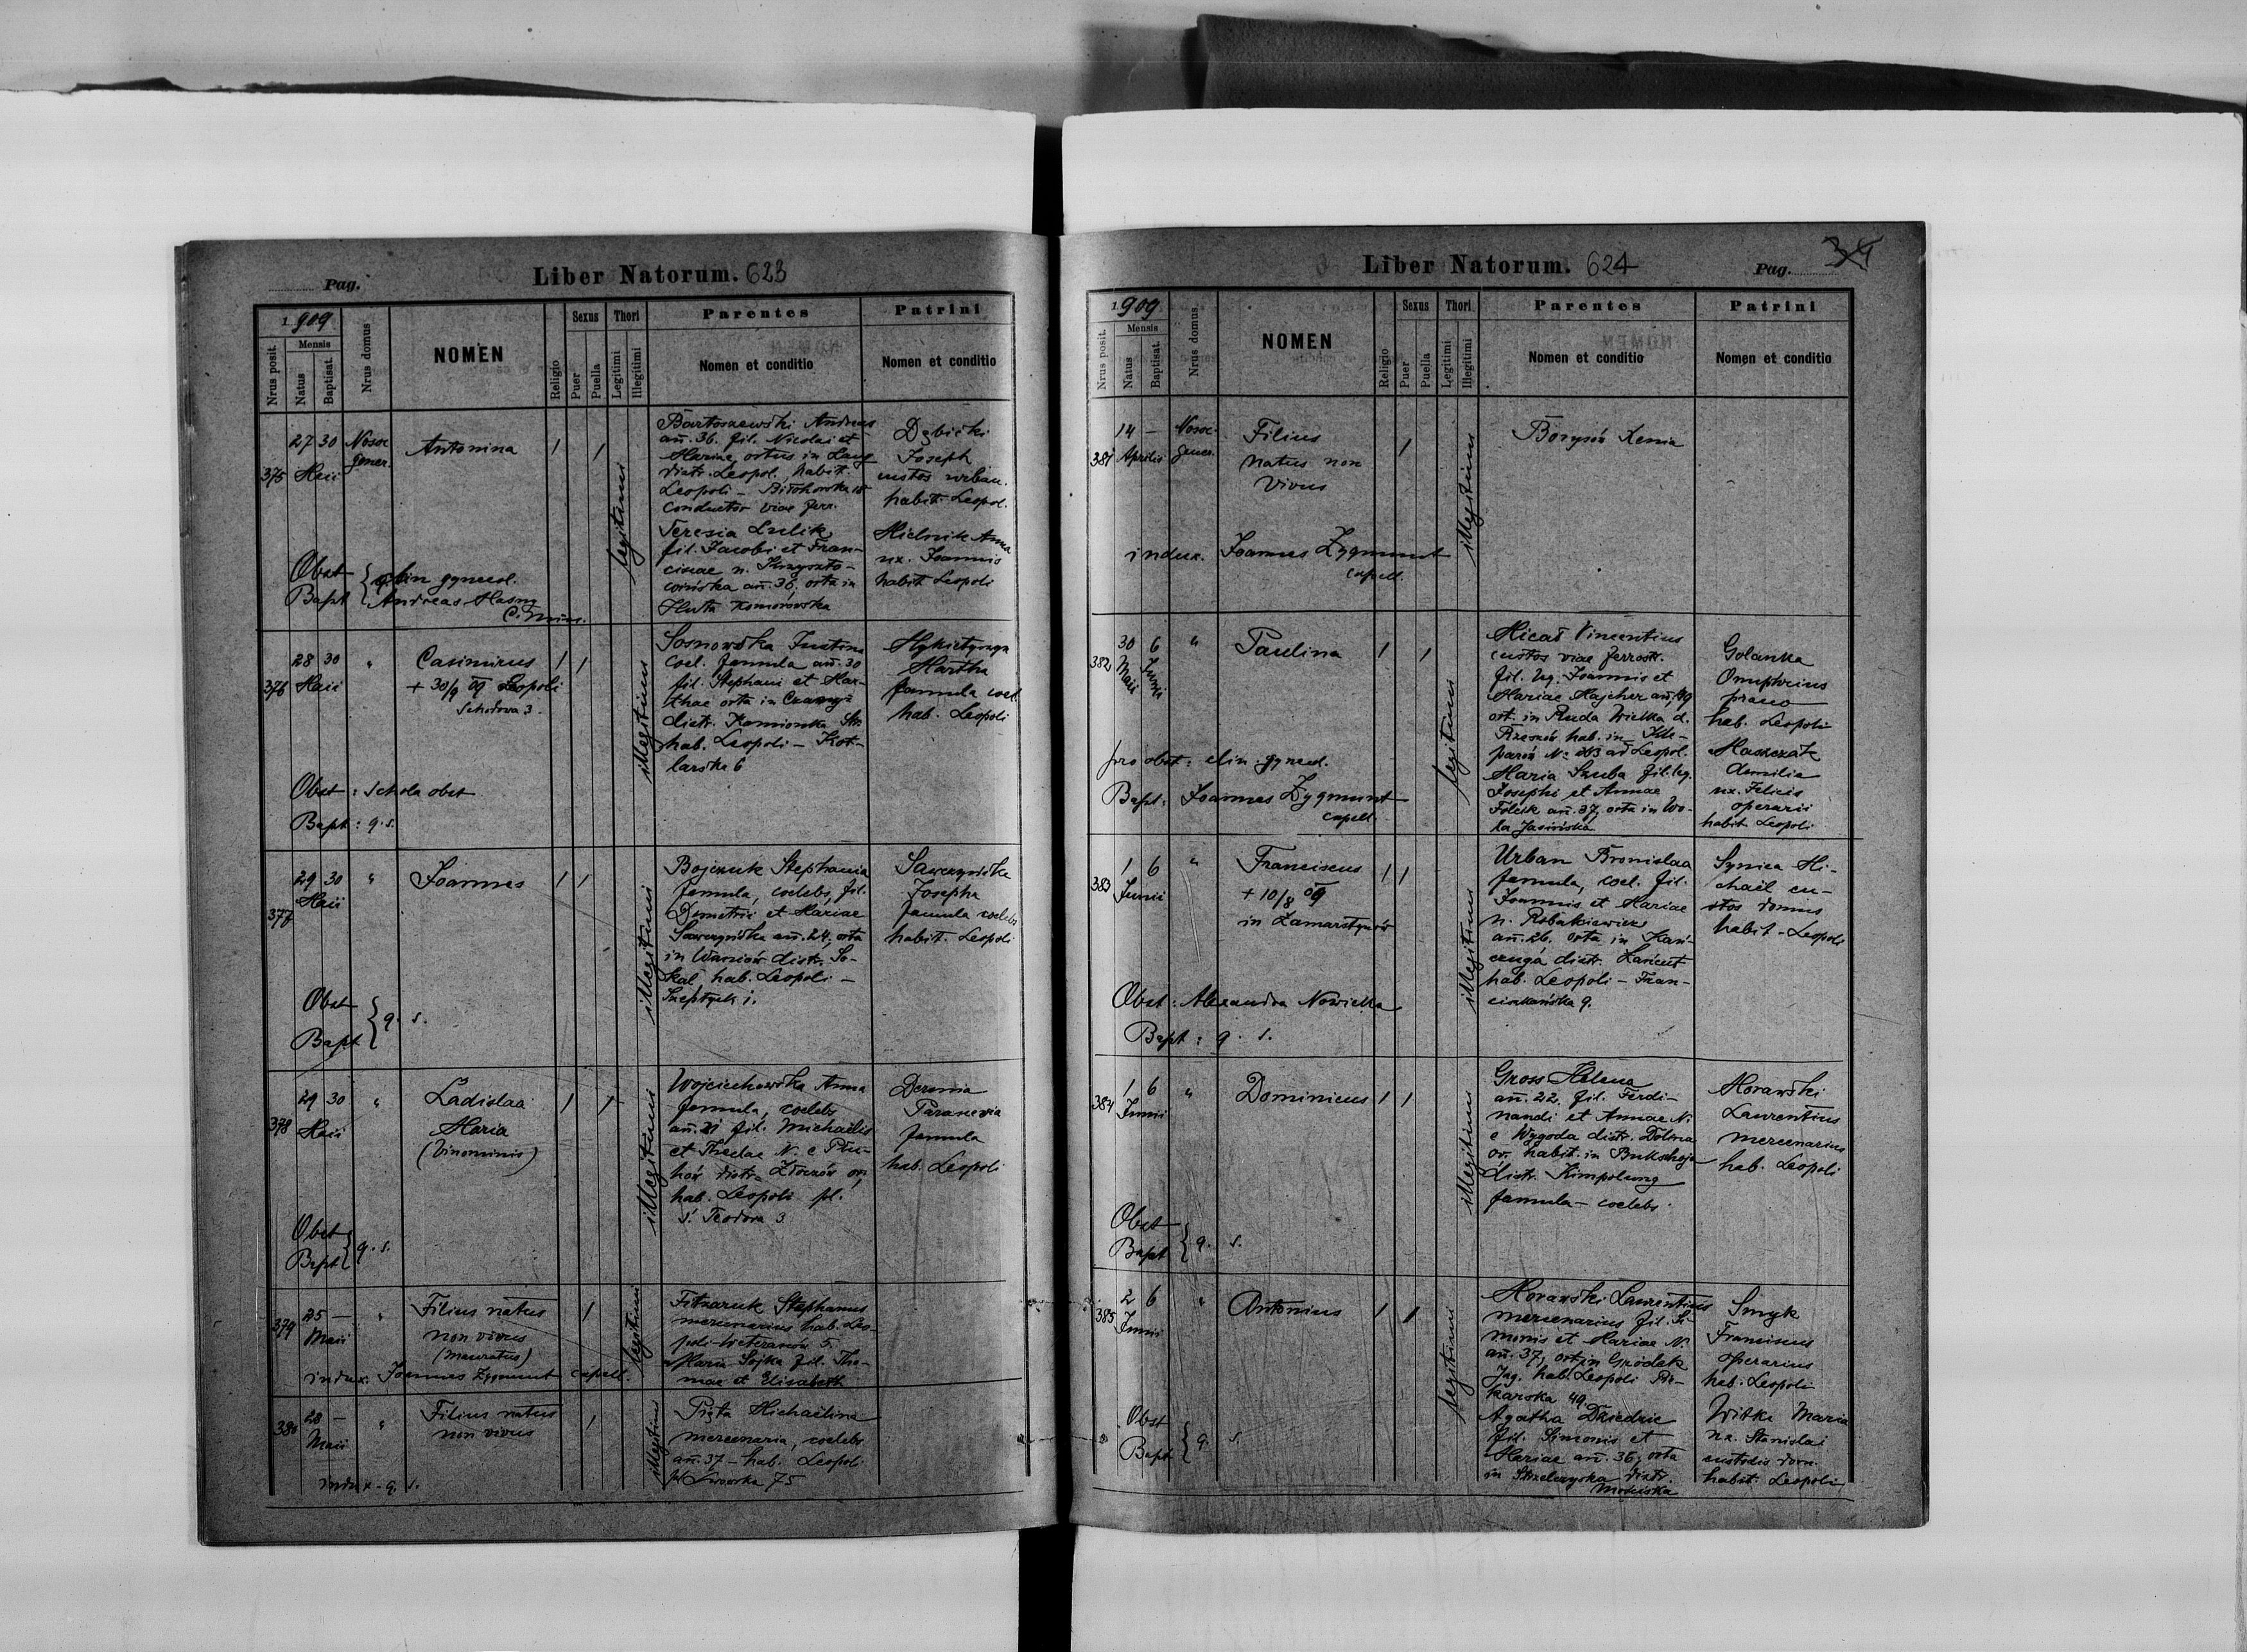 Pag.
Liber Natorum. 623
1909
Mensis
Nrus posit.
Natus
Baptisat.
Nrus domus
NOMEN
Religio
Sexus
Puer
Puella
Thori
Legitimi
Illegitimi
Parentes
Nomen et conditio
Patrini
Nomen et conditio
375
27 30
Maii
Nosoc
gener.
Antonina
1 1
legitimi
Bartoszewski Andreas
añ. 36. fil. Nicolai et
Mariae, ortus in Lang
distr. Leopol. habit.
Leopoli –
conductor viae ferr.
Teresia Lulik
fil. Jacobi et Fran-
ciscae n. Krzyszto-
añ. 36, orta in
Huta Komorowska
Dębicki
Joseph
custos urban.
habit. Leopol.
Mielnik Anna
ux. Joannis
habit Leopoli
Obst
Bapt
{ clin gynecol.
Andreas Hasny
376
28 30
Maii
"
Casimirus
+ 30/9 09 Leopoli
3.
1 1
illegitimi
Sosnowska Justina
coel. famula añ. 30
fil. Stephani et Mar-
thae orta in
distr. Kamionka Str
hab. Leopoli – Kot-
larska 6
Martha
famula coel.
hab. Leopoli
Obst : Schola obst
Bapt : q. s.
377
29 30
Maii
"
Joannes
1 1
illegitimi
Bojczuk Stephania
famula, coelebs, fil.
Demetrii et Mariae
Sawczyńska añ. 24, orta
in distr. So-
kal hab. Leopoli –
1.
Sawczyńska
Josepha
famula coelebs
habit. Leopoli
Obst
Bapt
{ q. s.
378
29 30
Maii
"
Ladislaa
Maria
(binominis)
1 1
illegitimi
Wojciechowska Anna
famula, coelebs
añ. 21 fil. Michaelis
et Theclae N. e Płu-
hów distr. Złoczów or,
hab. Leopoli pl.
S. Teodora 3
Deremia
Paraxevia
famula
hab. Leopoli
Obst
Bapt
{ q. s.
379
25 —
Maii
"
Filius natus
non vivus
1
legitimi
Fitzaruk Stephanus
mercenarius hab. Leo-
poli – Weteranów 5.
Maria Sojka fil. Tho-
mae et Elisabeth
indux. Joannes Zygmunt capell.
380
28 —
Maii
"
Filius natus
non vivus
1
illegitimi
Pięta Michaëlina
mercenaria, coelebs
añ. 37 – hab. Leopoli
Lwowska 75
indux – q. s.
Liber Natorum. 624
Pag. 34
1909
Mensis
Nrus posit.
Natus
Baptisat.
Nrus domus
NOMEN
Religio
Sexus
Puer
Puella
Thori
Legitimi
Illegitimi
Parentes
Nomen et conditio
Patrini
Nomen et conditio
381
14 —
Aprilis
Nosoc.
gener.
Filius
natus non
vivus
1
illegitimi
Borysów Xenia
indux. Joannes Zygmunt
capell.
382
30 6
Maii Junii
"
Paulina
1 1
legitimi
Micał Vincentius
custos viae ferrostr.
fil. leg. Joannis et
Mariae Majcher añ. 49
ort. in Ruda Wielka d.
Rzeszów hab. in Kle-
parów No 213 ad Leopol.
Maria Szuba fil. leg.
Josephi et Annae
añ. 37, orta in Wo-
la
Golanka
Onuphrius
praeco
hab. Leopoli
Aemilia
ux. Felicis
operarii
habit Leopoli
pro obst : clin. gynecol.
Bapt : Joannes Zygmunt
capell.
383
1 6
Junii
"
Franciscus
+ 10/8 09
in Zamarstynów
1 1
illegitimi
Urban Bronislaa
famula, coel. fil.
Joannis et Mariae
n. Robakiewicz
añ. 26. orta in Kań-
czuga distr. Łańcut
hab. Leopoli – Fran-
ciszkańska 9.
Synica Mi-
chaël cu-
stos domus
habit – Leopoli
Obst : Alexandra Nowicka
Bapt : q. s.
384
1 6
Junii
"
Dominicus
1 1
illegitimi
Gross Helena
añ. 22, fil. Ferdi-
nandi et Annae N.
e Wygoda distr. Dolina
or. habit. in Bukschoja
distr. Kimpolung
famula – coelebs
Morawski
Laurentius
mercenarius
hab. Leopoli
Obst
Bapt
{ q. s.
385
2 6
Junii
"
Antonius
1 1
legitimi
Morawski Laurentius
mercenarius fil. Si-
monis et Mariae N.
añ. 37, ort in Gródek
Jag. hab. Leopoli Pie-
karska 49
Agatha Dziedzic
fil. Simonis et
Mariae añ. 36, orta
in Strzelczyska distr.
Mościska
Smyk
Franciscus
operarius
hab. Leopoli
Witka Maria
ux. Stanislai
custodis dom.
habit. Leopoli
Obst
Bapt
{ q. s.